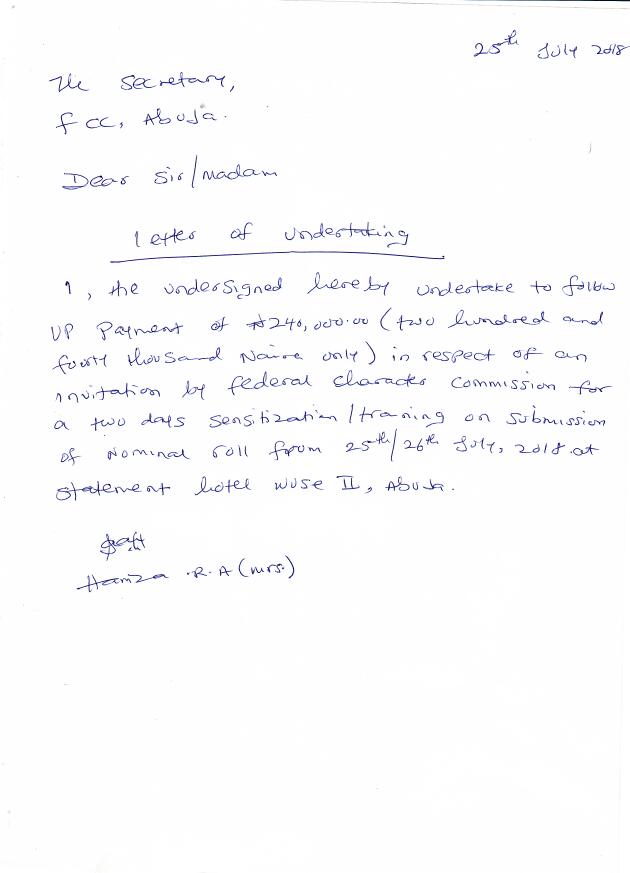 25th July 2018
The Secretary,
FCC, Abuja.
Dear Sir/Madam
Letter of Undertaking
I, the undersigned hereby undertake to follow
UP Payment of ₦240,000.00 (two hundred and
fourty thousand Naira only) in respect of an
invitation by federal character Commission for
a two days sensitization/training on submission
of Nominal roll from 25th/26th July, 2018 at
statement hotel wuse II, Abuja.
Hamza .R.A (mrs.)